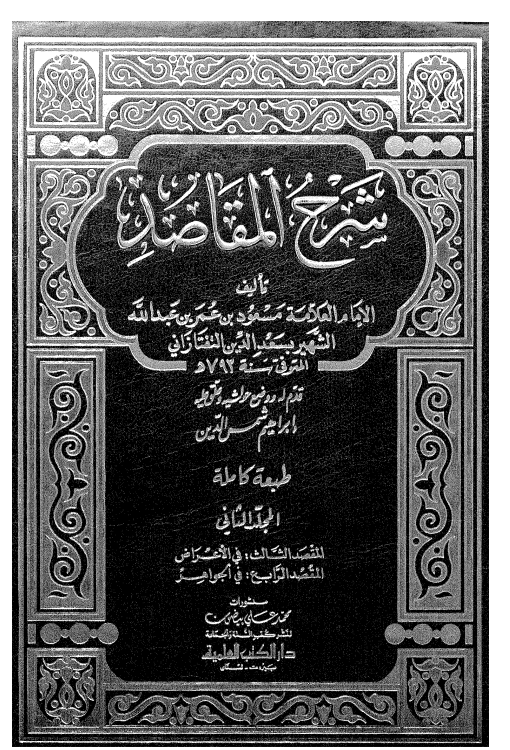 شَرْحُ المَقَاصِدِ
تأليف
الإمام العلامة مسعود بن عمر بن عبد الله
الشهير بسعد الدين التفتازاني
المتوفى سنة ٧٩٣ هـ
قدم له ووضع حواشيه وعلق عليه
إبراهيم شمس الدين
طبعة كاملة
المجلد الثاني
المقصد الثالث: في الأعراض
المقصد الرابع: في الجواهر
منشورات
محمد علي بيضون
لنشر كتب السنة والجماعة
دار الكتب العلمية
بيروت - لبنان